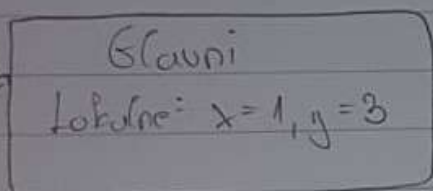 Glavni
Lokalne: x=1, y=3